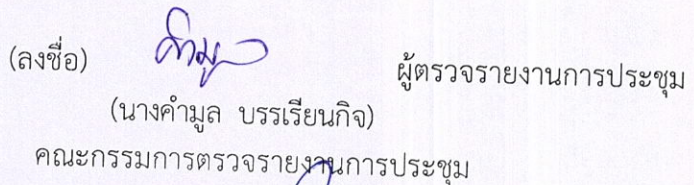 (ลงชื่อ) คำมูล ผู้ตรวจรายงานการประชุม
(นางคำมูล บรรเรียนกิจ)
คณะกรรมการตรวจรายงานการประชุม